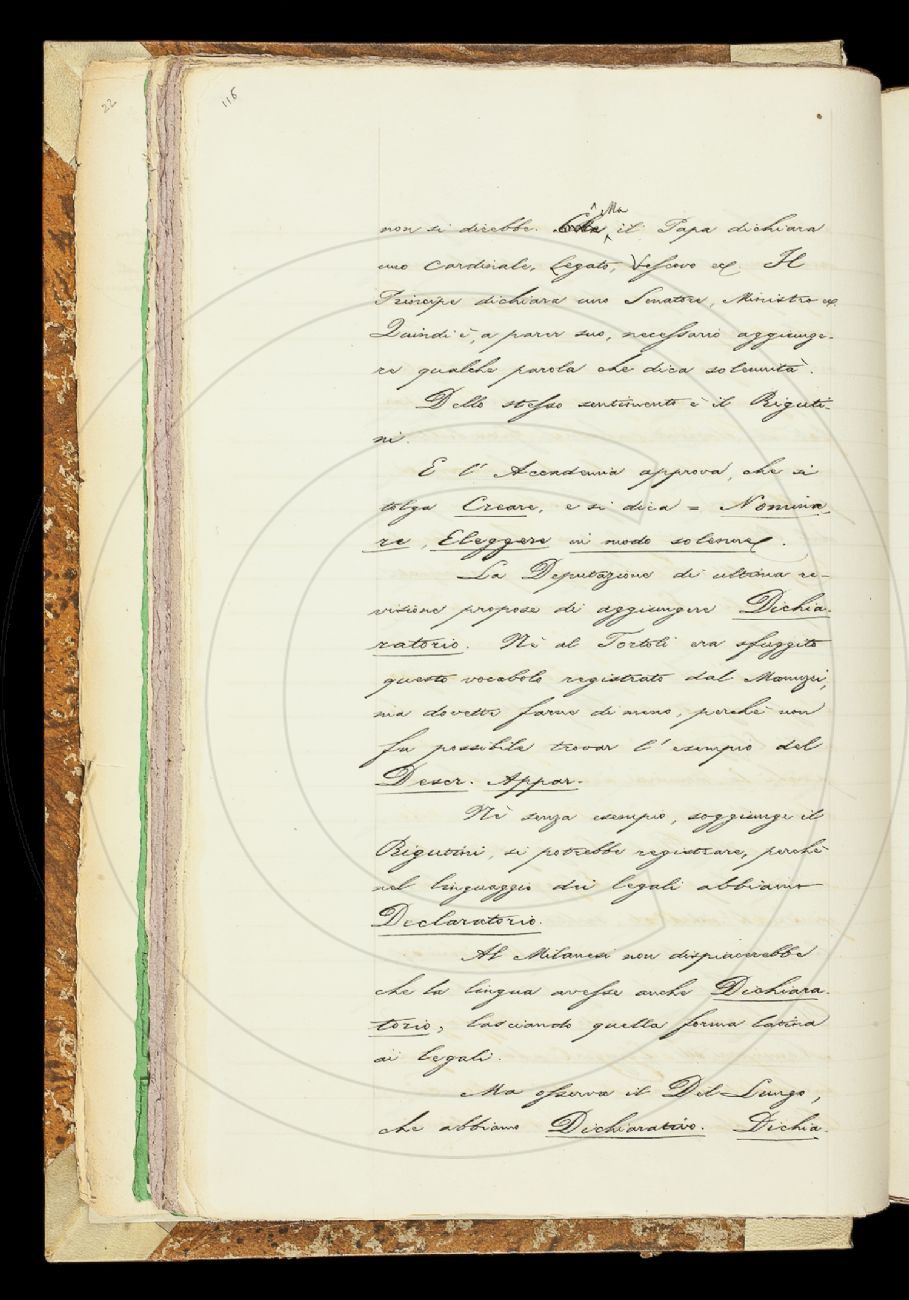 22
116
non si direbbe. Ma il Papa dichiara
uno Cardinale, Legato, Vescovo ec. Il
Principe dichiara uno Senatore, Ministro ec.
Quindi è, a parer suo, necessario aggiunge-
re qualche parola che dica solennità.
Dello stesso sentimento è il Riguti-
ni.
E l' Accademia approva, che si
tolga Creare, e si dica = Nomina-
re, Eleggere in modo solenne.
La Deputazione di ultima re-
visione propose di aggiungere Dichia-
ratorio. Nè al Tortoli era sfuggito
questo vocabolo registrato dal Manuzzi,
ma dovette farne di meno, perchè non
fu possibile trovar l' esempio del
Descr. Appar.
Nè senza esempio, soggiunge il
Rigutini, si potrebbe registrare, perchè
nel linguaggio dei legali abbiamo
Declaratorio.
Al Milanesi non dispiacerebbe
che la lingua avesse anche Dichiara-
torio, lasciando quella forma latina
ai legali.
Ma osserva il Del-Lungo,
che abbiamo Dichiarativo. Dichia-